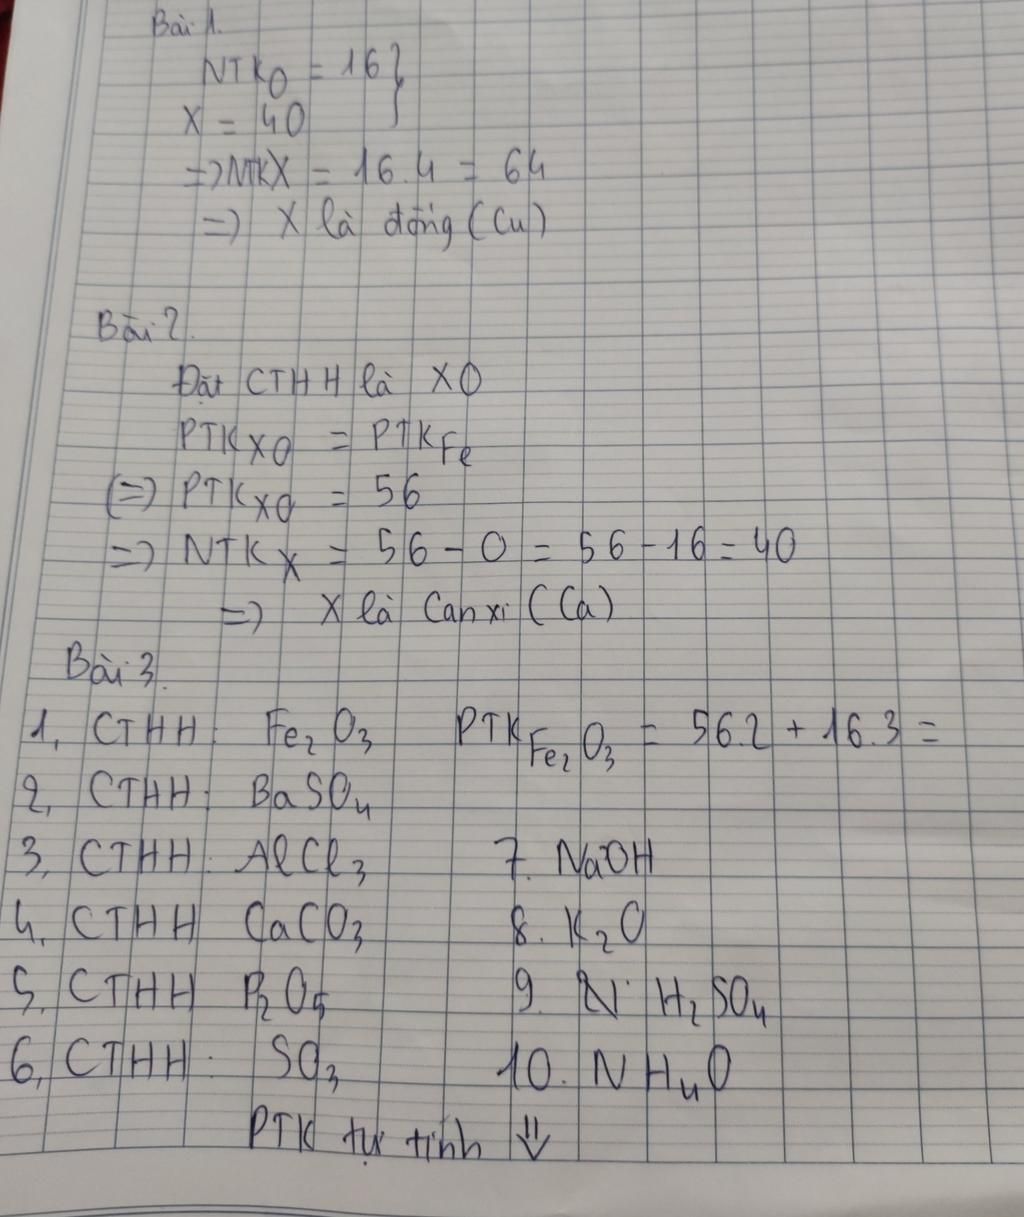 Bài 1.
NTKO = 16 }
X = 4O
=> NTKX = 16.4 = 64
=> X là đồng (Cu)
Bài 2.
Đặt CTHH là XO
PTKXO = PTKFe
(=) PTKXO = 56
=> NTKX = 56 - O = 56 - 16 = 40
=> X là Canxi (Ca)
Bài 3.
1, CTHH: Fe2O3 PTKFe2O3 = 56.2 + 16.3 =
2, CTHH: BaSO4
3, CTHH: AlCl3 7. NaOH
4, CTHH CaCO3 8. K2O
5, CTHH P2O5 9. N H2SO4
6, CTHH: SO3 10. NH4O
PTK tự tính ⇓